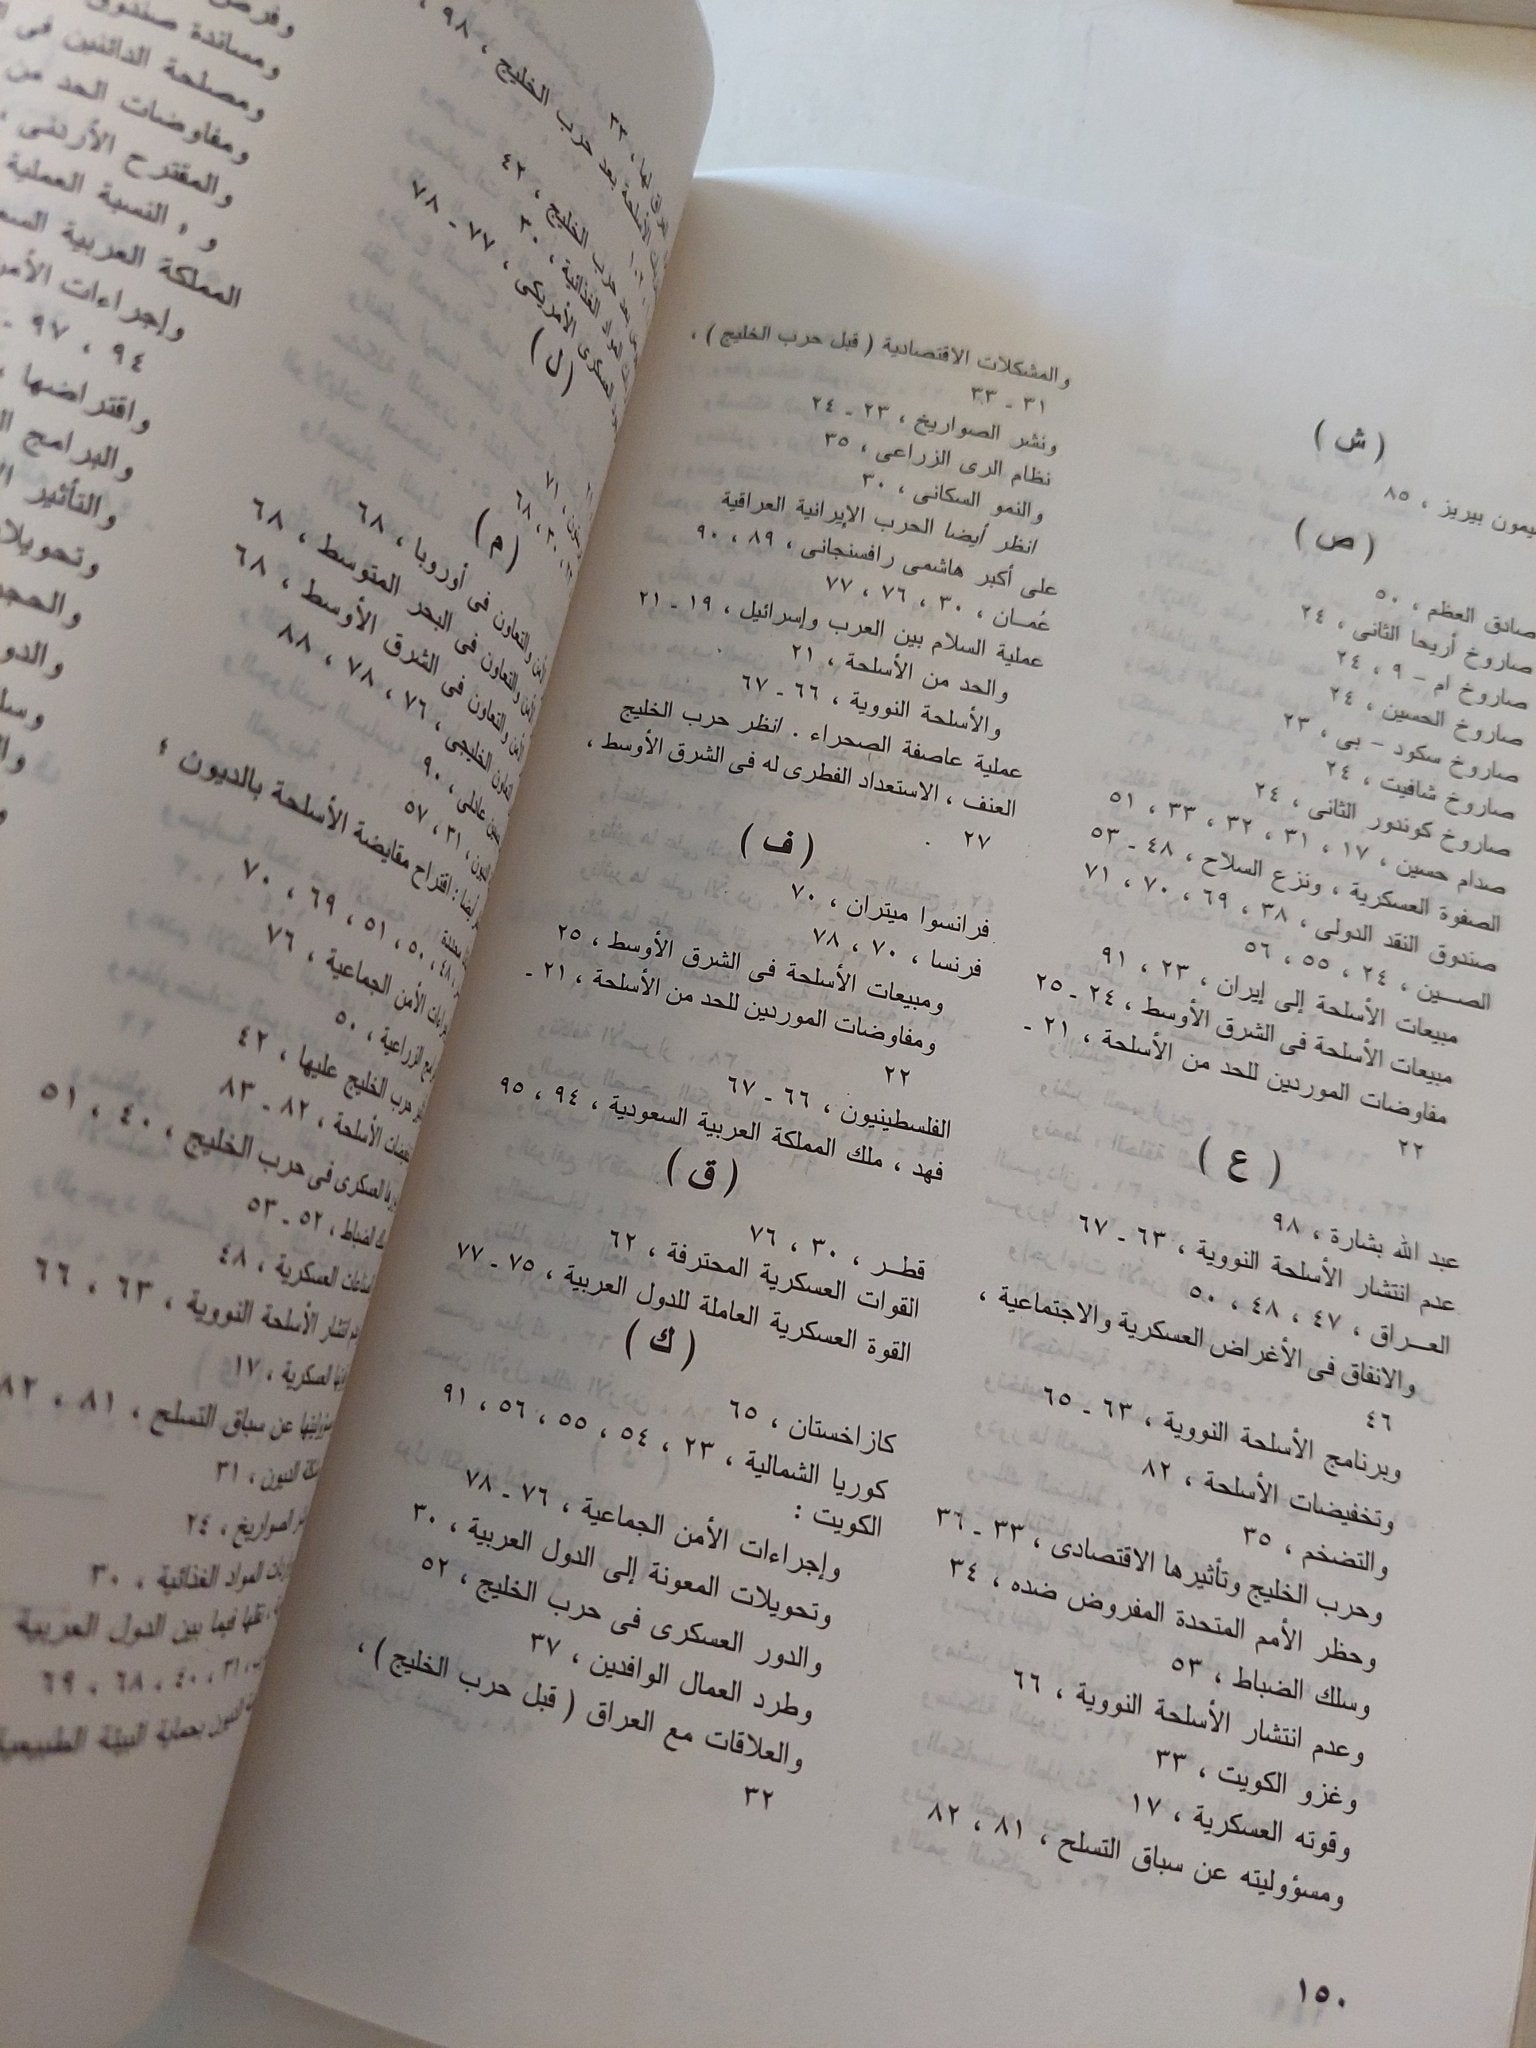 ( ش )
يمون بيريز ، ٨٥
( ص )
صادق العظم ، ٥٠
صاروخ أريحا الثانى ، ٢٤
صاروخ ام – ٩ ، ٢٤
صاروخ الحسين ، ٢٤
صاروخ سكود – بى ، ٢٣
صاروخ شافيت ، ٢٤
صاروخ كوندور الثانى ، ٢٤
صدام حسين ، ١٧ ، ٣١ ، ٣٢ ، ٣٣ ، ٥١
الصفوة العسكرية ، ونزع السلاح ، ٤٨ ـ ٥٣
صندوق النقد الدولى ، ٣٨ ، ٦٩ ، ٧٠ ، ٧١
الصــين ، ٢٤ ، ٥٥ ، ٥٦
مبيعات الأسلحة إلى إيران ، ٢٣ ، ٩١
مبيعات الأسلحة فى الشرق الأوسط ، ٢٤ ـ ٢٥
مفاوضات الموردين للحد من الأسلحة ، ٢١ ـ
٢٢
( ع )
عبد الله بشارة ، ٩٨
عدم انتشار الأسلحة النووية ، ٦٣ ـ ٦٧
العــراق ، ٤٧ ، ٤٨ ، ٥٠
والانفاق فى الأغراض العسكرية والاجتماعية ،
٤٦
وبرنامج الأسلحة النووية ، ٦٣ ـ ٦٥
وتخفيضات الأسلحة ، ٨٢
والتضخم ، ٣٥
وحرب الخليج وتأثيرها الاقتصادى ، ٣٣ ـ ٣٦
وحظر الأمم المتحدة المفروض ضده ، ٣٤
وسلك الضباط ، ٥٣
وعدم انتشار الأسلحة النووية ، ٦٦
وغزو الكويت ، ٣٣
وقوته العسكرية ، ١٧
ومسؤوليته عن سباق التسلح ، ٨١ ، ٨٢
والمشكلات الاقتصادية ( قبل حرب الخليج ) ،
٣١ ـ ٣٣
ونشر الصواريخ ، ٢٣ ـ ٢٤
نظام الرى الزراعى ، ٣٥
والنمو السكانى ، ٣٠
انظر أيضا الحرب الإيرانية العراقية
على أكبر هاشمى رافسنجانى ، ٨٩ ، ٩٠
عُمــان ، ٣٠ ، ٧٦ ، ٧٧
عملية السلام بين العرب وإسرائيل ، ١٩ ـ ٢١
والحد من الأسلحة ، ٢١
والأسلحة النووية ، ٦٦ ـ ٦٧
عملية عاصفة الصحراء . انظر حرب الخليج
العنف ، الاستعداد الفطرى له فى الشرق الأوسط ،
٢٧
( ف )
فرانسوا ميتران ، ٧٠
فرنسا ، ٧٠ ، ٧٨
ومبيعات الأسلحة فى الشرق الأوسط ، ٢٥
ومفاوضات الموردين للحد من الأسلحة ، ٢١ ـ
٢٢
الفلسطينيون ، ٦٦ ـ ٦٧
فهد ، ملك المملكة العربية السعودية ، ٩٤ ، ٩٥
( ق )
قطــر ، ٣٠ ، ٧٦
القوات العسكرية المحترفة ، ٦٢
القوة العسكرية العاملة للدول العربية ، ٧٥ ـ ٧٧
( ك )
كازاخستان ، ٦٥
كوريا الشمالية ، ٢٣ ، ٥٤ ، ٥٥ ، ٥٦ ، ٩١
الكويت :
وإجراءات الأمن الجماعية ، ٧٦ ـ ٧٨
وتحويلات المعونة إلى الدول العربية ، ٣٠
والدور العسكرى فى حرب الخليج ، ٥٢
وطرد العمال الوافدين ، ٣٧
والعلاقات مع العراق ( قبل حرب الخليج ) ،
٣٢
١٥٠
٣٣
الأسلحة بعد حرب الخليج ، ٩٨ ،
بعد حرب الخليج ، ٤٢
المواد الغذائية ، ٣٠
العسكرى الأمريكى ، ٧٧ ـ ٧٨
( ل )
٧١
٣٠ ، ٦٨
( م )
والتعاون فى أوروبا ، ٦٨
والتعاون فى البحر المتوسط ، ٦٨
والتعاون فى الشرق الأوسط ، ٦٨
التعاون الخليجى ، ٧٦ ، ٧٨ ، ٨٨
٩٠
٣١ ، ٥٧
أيضا : اقتراح مقايضة الأسلحة بالديون ؛
٤٨ ، ٥٠ ، ٥١ ، ٦٩ ، ٧٠
الأمن الجماعية ، ٧٦
الزراعية ، ٥٠
حرب الخليج عليها ، ٤٢
الأسلحة ، ٨٢ ـ ٨٣
العسكرى فى حرب الخليج ، ٤٠ ، ٥١
الضباط ، ٥٢ ـ ٥٣
العسكرية ، ٤٨
انتشار الأسلحة النووية ، ٦٣ ، ٦٦
العسكرية ، ١٧
عن سباق التسلح ، ٨١ ، ٨٢
الديون ، ٣١
الصواريخ ، ٢٤
المواد الغذائية ، ٣٠
نقلها فيما بين الدول العربية
٣١ ، ٤٠ ، ٦٨ ، ٦٩
بحماية البيئة الطبيعية
ومساندة صندوق
ومصلحة الدائنين فى
ومفاوضات الحد من
والمقترح الأردنى ،
و « النسبة العملية
المملكة العربية
وإجراءات الأمن
٩٤ ، ٩٧ ـ
واقتراضها
والبرامج
والتأثير
وتحويلات